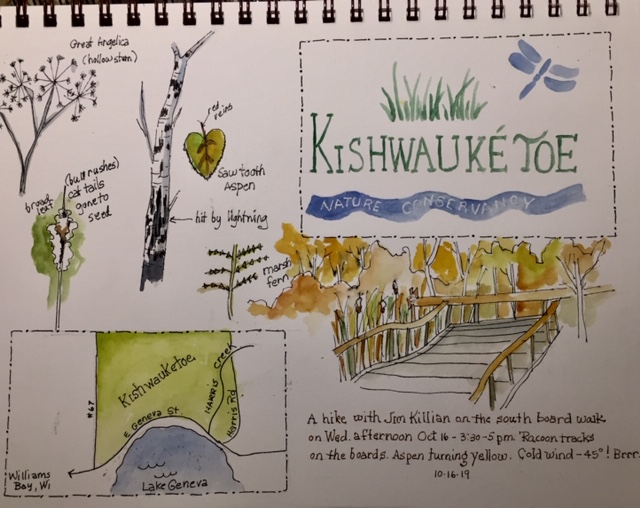 Great Angelica
(hollow stem)
red
veins
Sawtooth
Aspen
(bull rushes)
cat tails
gone to
seed
broad
leaf
hit by lightning
marsh
fern
KISHWAUKÉTOE
NATURE CONSERVANCY
Kishwauketoe
HARRIS Creek
Harris Rd
#67
E Geneva St
Williams
Bay, Wi
Lake Geneva
A hike with Jim Killian on the south board walk
on Wed. afternoon Oct 16 - 3:30-5 pm. Racoon tracks
on the boards. Aspen turning yellow. Cold wind - 45°! Brrr.
10-16-19